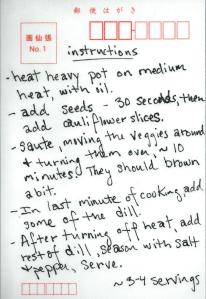 郵便はがき
画仙紙
No. 1
instructions
- heat heavy pot on medium
heat, with oil.
- add seeds - 30 seconds, then
add cauliflower slices.
- saute, moving the veggies around
& turning them over, ~ 10
minutes. They should brown
a bit.
- In last minute of cooking, add
some of the dill.
- After turning off heat, add
rest of dill, season with salt
& pepper, serve.
~ 3-4 servings